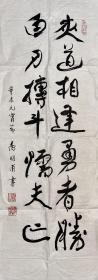 夾道相逢勇者勝
白刃搏斗懦夫亡
辛未元宵節
書